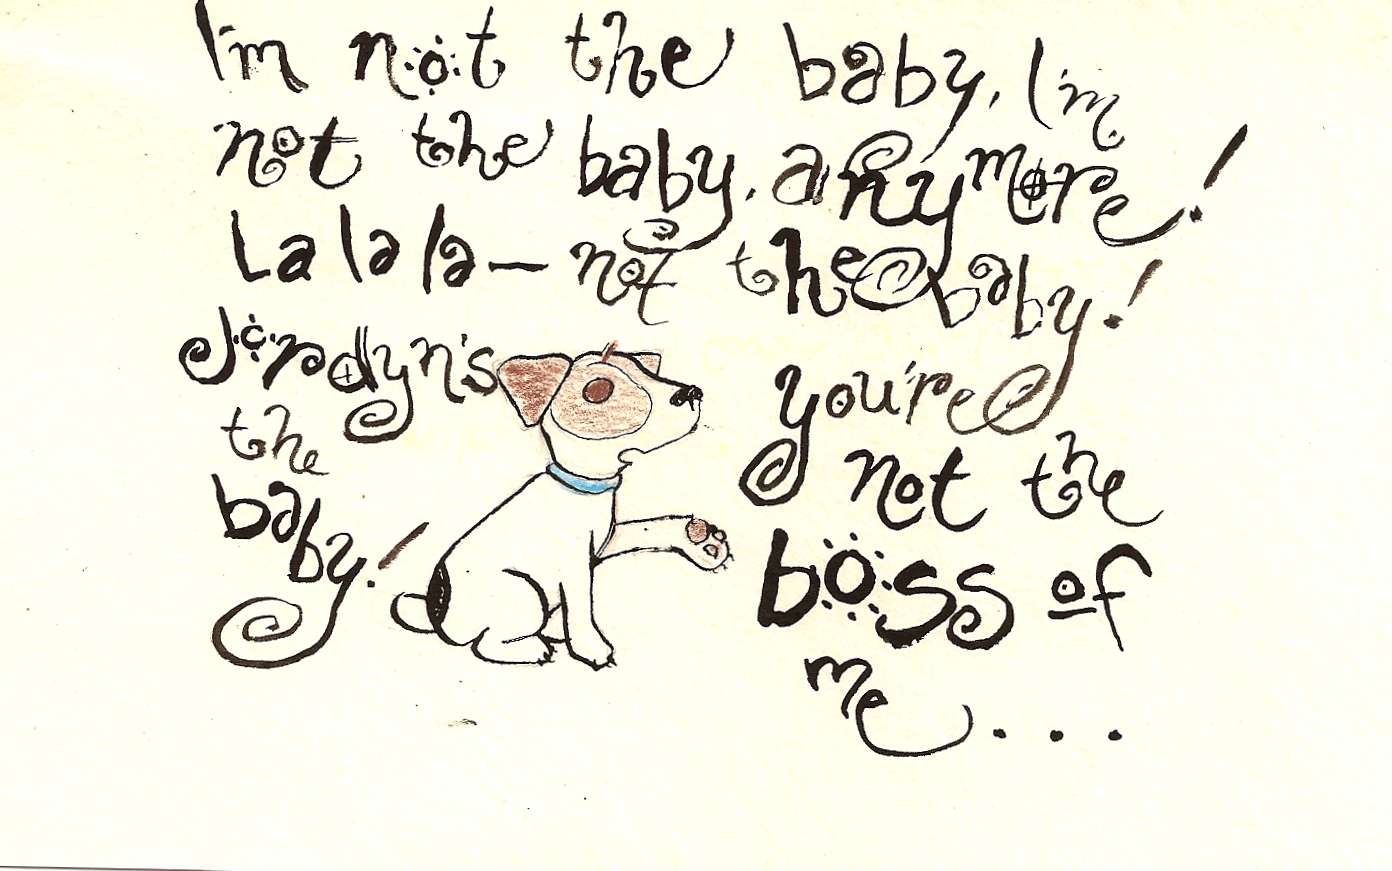 I'm not the baby, I'm
not the baby, anymore!
La la la — not the baby!
Jordyn's
the
baby!
you're
not the
boss of
me . . .